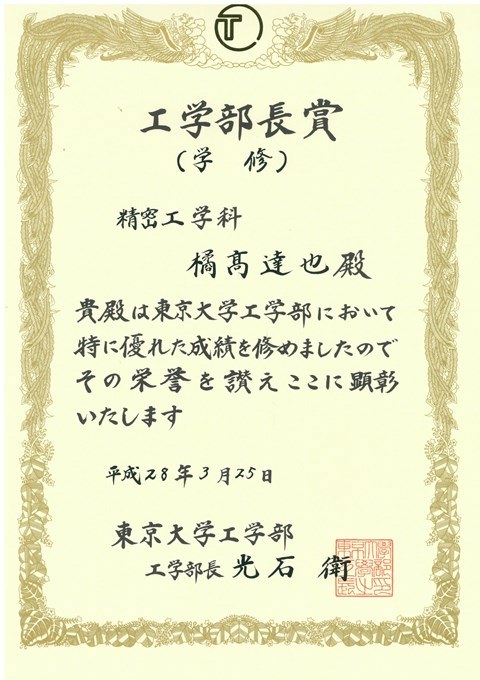 T
工学部長賞
（学 修）
精密工学科
橘髙達也殿
貴殿は東京大学工学部において
特に優れた成績を修めましたので
その栄誉を讃えここに顕彰
いたします
平成28年3月25日
東京大学工学部
工学部長 光石 衛